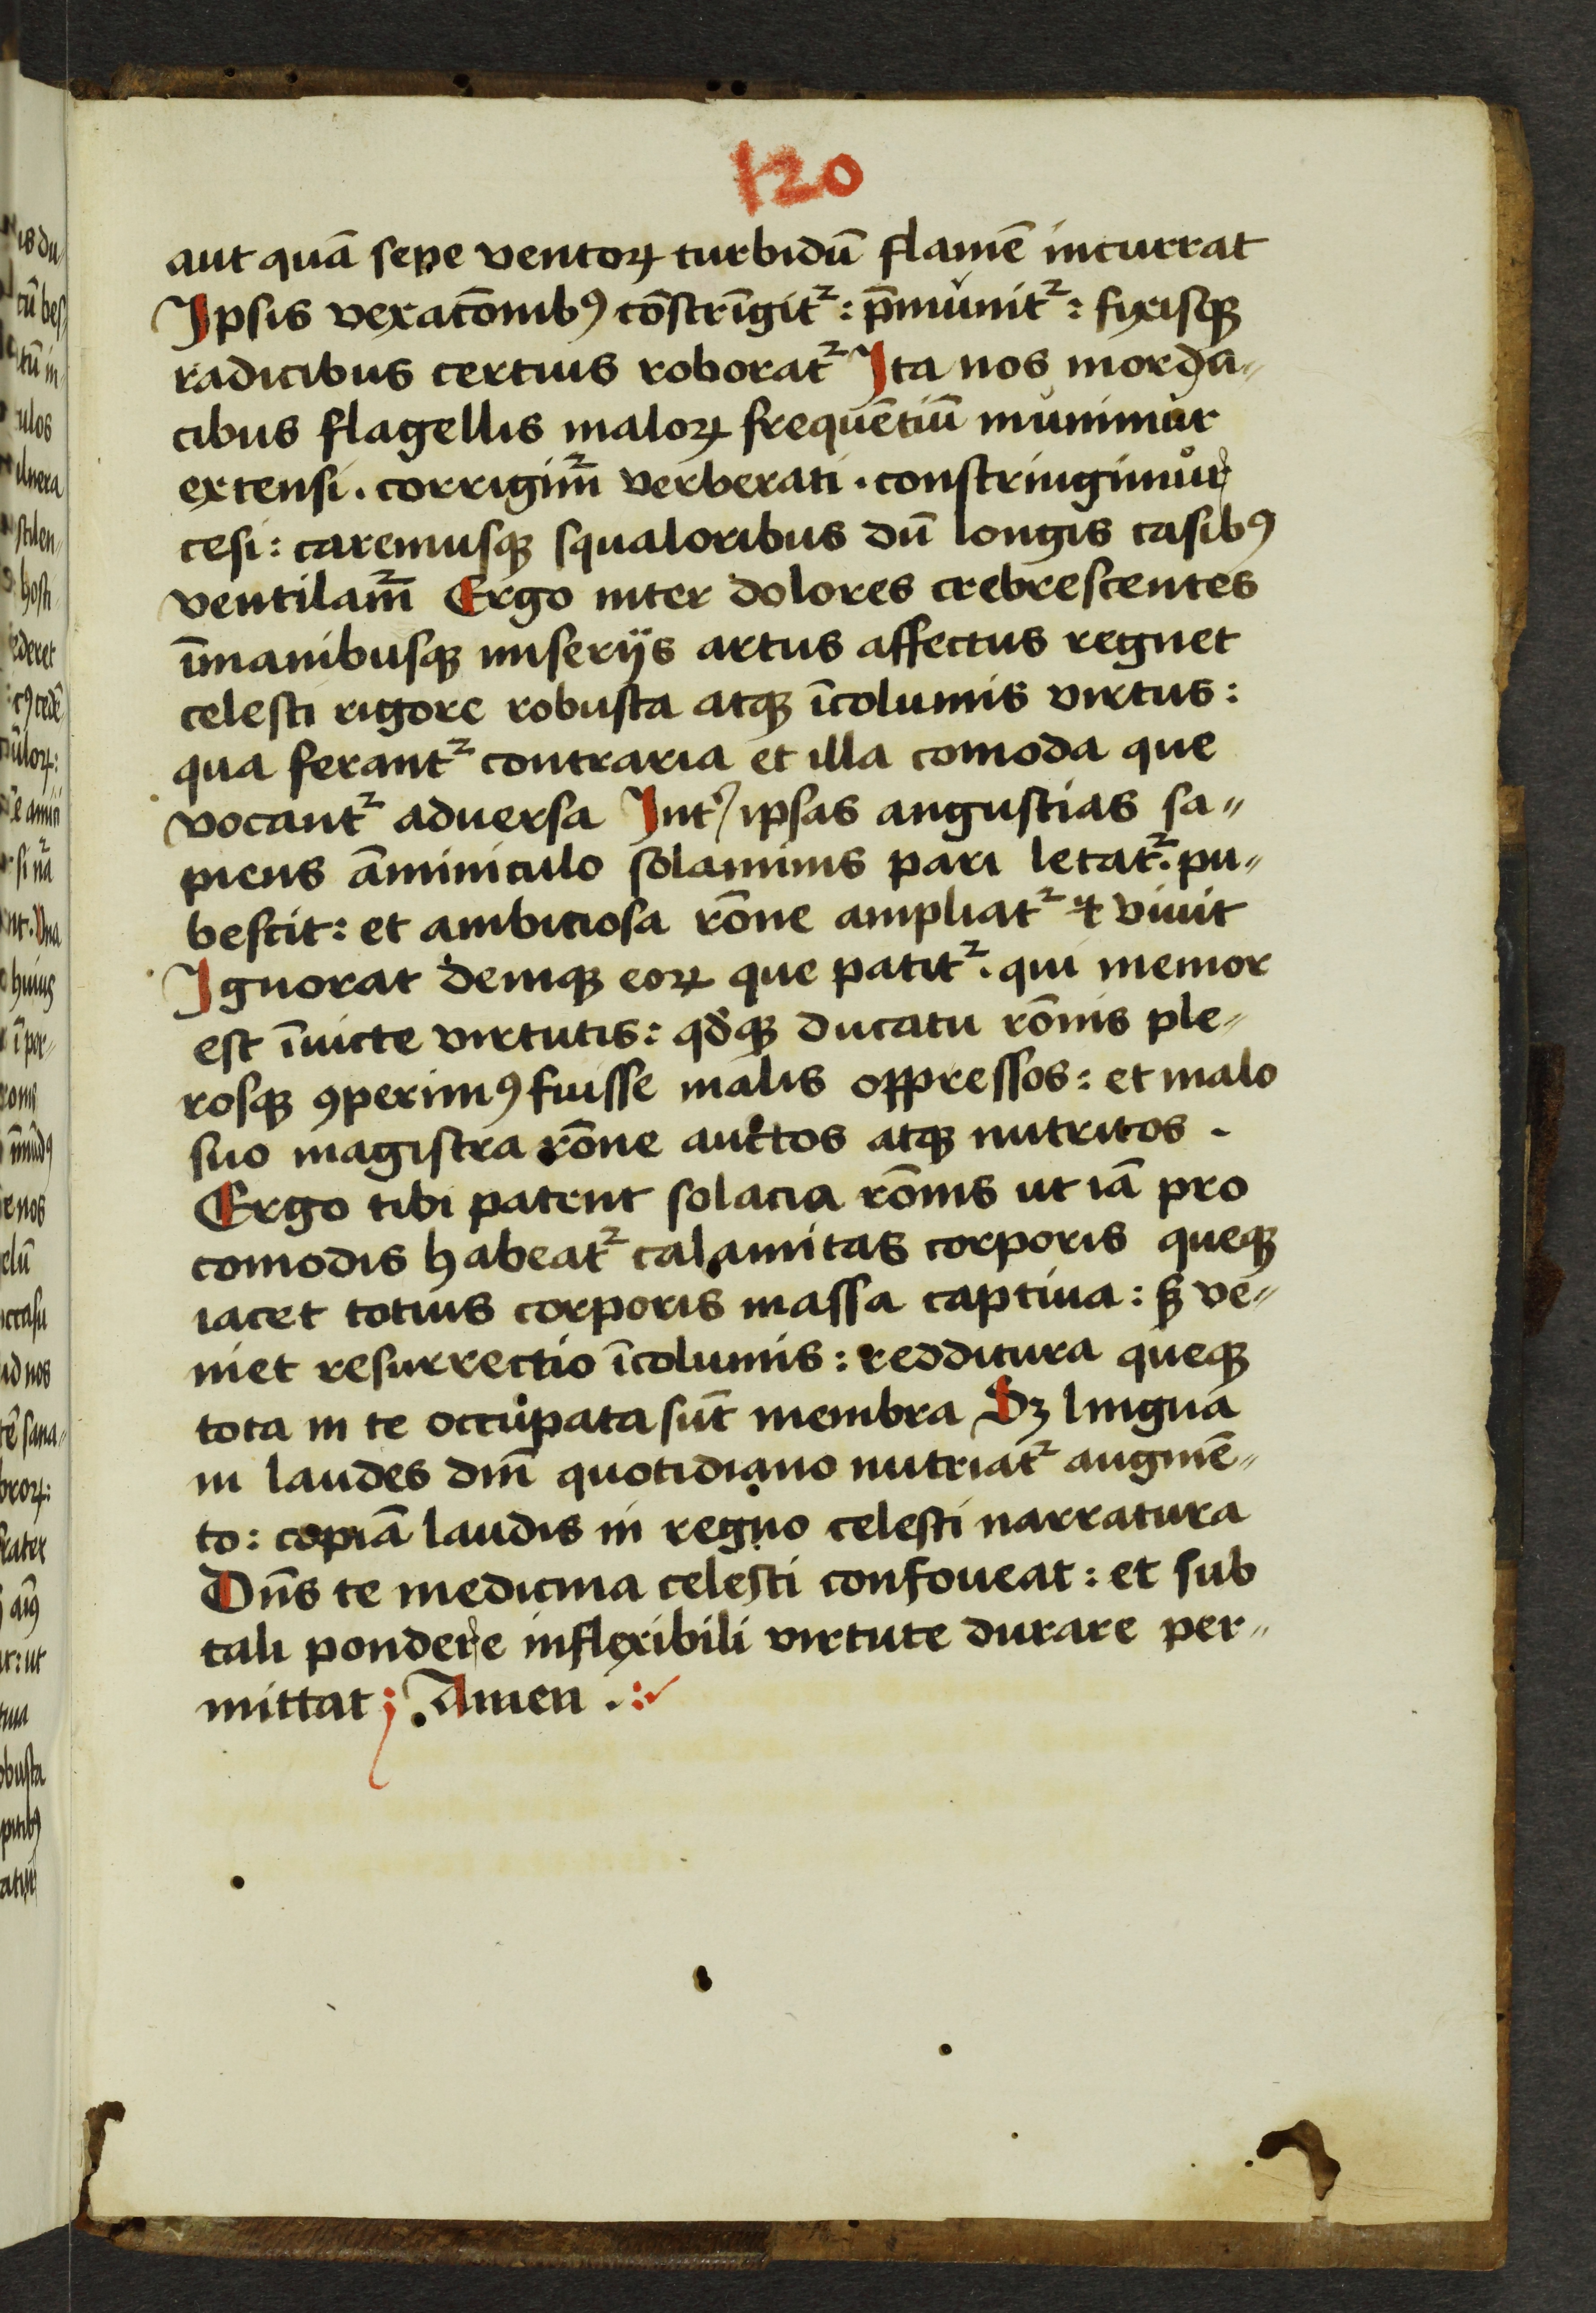 120
aut quā sepe ventoꝝ turbidū flamē incurrat
Ipsis vexacōnibꝰ cōstrīgit᷑ : p̄munit᷑ : fixisqꝫ
radicibus certius roborat᷑ Ita nos morda⸗
cibus flagellis maloꝝ frequētiū munimur
extensi . corrigim᷑ verberati . constringimur
cesi : caremusqꝫ squaloribus dū longis casibꝰ
ventilam᷑ Ergo inter dolores crebrescentes
īmanibusqꝫ miserijs artus affectus regnet
celesti rigore robusta atqꝫ īcolumis virtus :
qua ferant᷑ contraria et illa comoda que
vocant᷑ aduersa Int᷑ ipsas angustias sa⸗
piens āminiculo solaminis pari letat᷑ . pu⸗
bescit : et ambiciosa rōne ampliat᷑ ⁊ viuit
Ignorat deniqꝫ eoꝝ que patit᷑ . qui memor
est īuicte virtutis : qđqꝫ ducatu rōnis ple⸗
rosqꝫ ꝯperimꝰ fuisse malis oppressos : et malo
suo magistra rōne auctos atqꝫ nutritos .
Ergo tibi patent solacia rōnis ut iā pro
comodis habeat᷑ calamitas corporis queqꝫ
iacet totius corporis massa captiua : ẜ ve⸗
niet resurrectio īcolumis : redditura queqꝫ
tota in te occupata sūt membra Sꝫ lingua
in laudes dn̄i quotidiano nutriat᷑ augmē⸗
to : copiā laudis in regno celesti narratura
Dn̄s te medicina celesti confoueat : et sub
tali pondere inflexibili virtute durare per⸗
mittat ; Amen .: